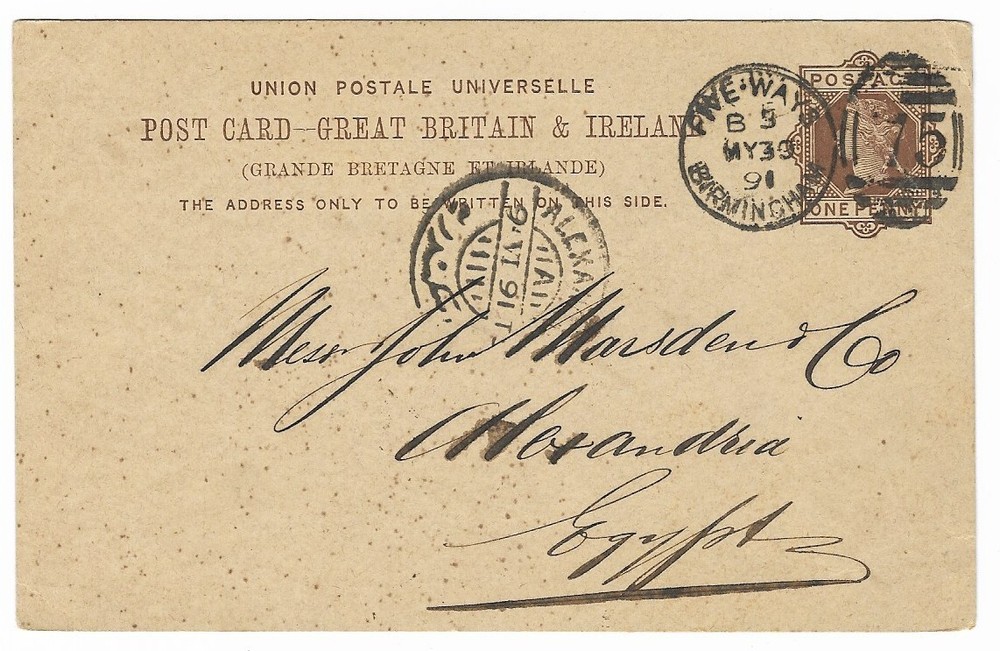 UNION POSTALE UNIVERSELLE
POST CARD—GREAT BRITAIN & IRELAND
(GRANDE BRETAGNE ET IRLANDE)
THE ADDRESS ONLY TO BE WRITTEN ON THIS SIDE.
POSTAGE
ONE PENNY
FIVE·WAYS
B 5
MY 30
91
BIRMINGHAM
75
ALEXA
6·VI 91 T
Messrs John Marsden & Co
Alexandria
Egypt